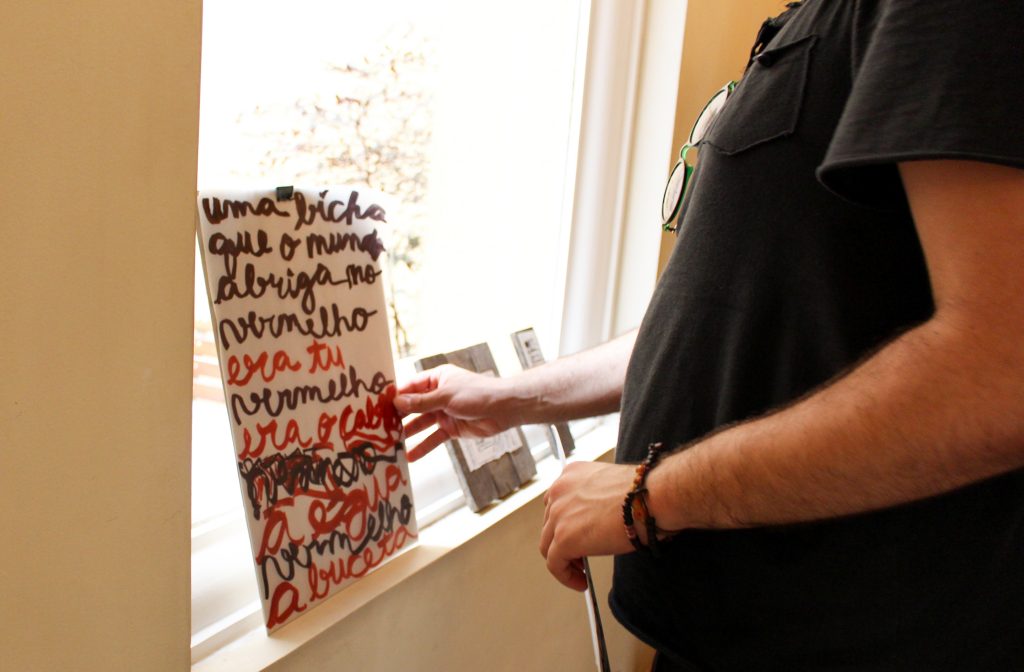 uma bicha
que o mundo
abriga, no
vermelho
era tu
vermelho
era o
a egua
vermelho
a buceta